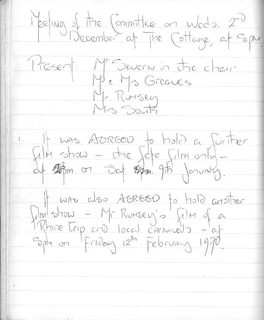 Meeting of the Committee on Weds. 2nd
December at The Cottage, at 8pm.
Present: Mr Severn in the chair
Mr & Mrs Greaves
Mr Rumsey
Mrs South
1. It was AGREED to hold a further
film show - the fete film only -
at pm on Sat 9th January.
It was also AGREED to hold another
film show - Mr Rumsey's film of a
Rhine trip and local carnivals - at
8pm on Friday 12th February 1970.